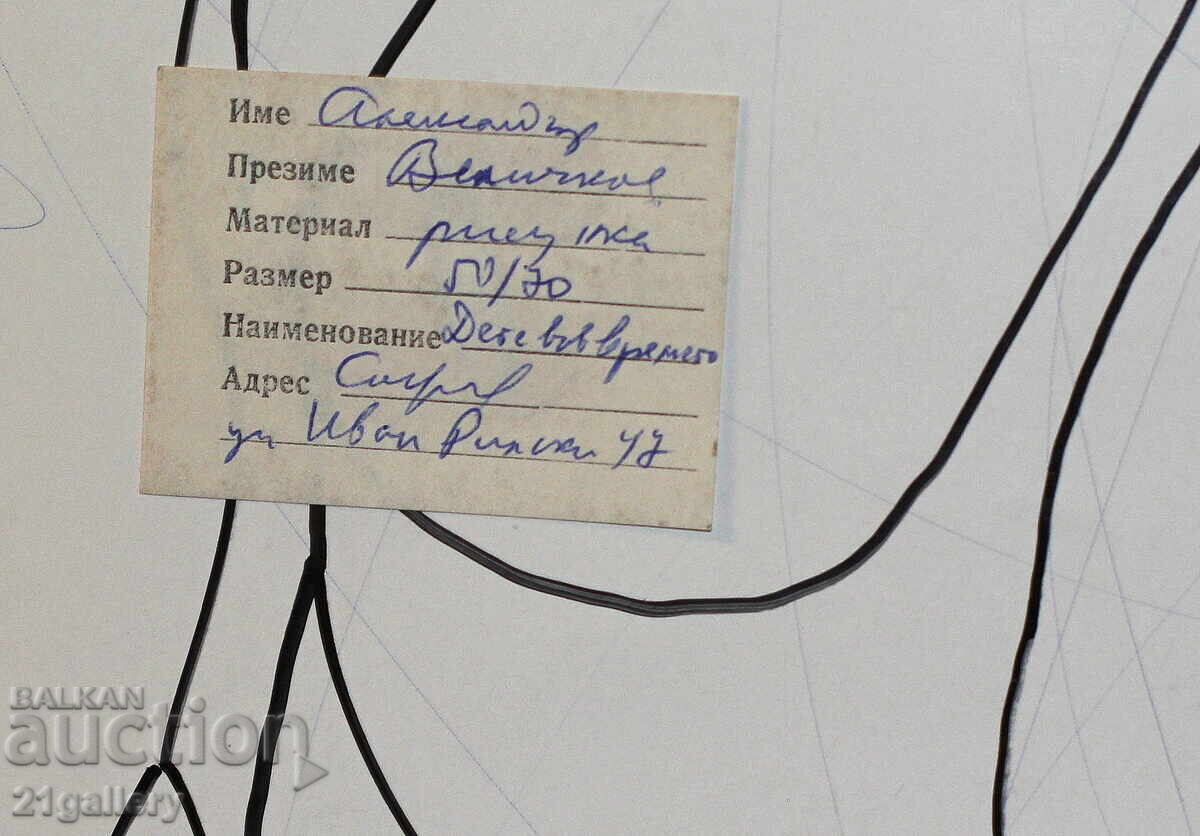 Име Александър
Презиме Величков
Материал рисунка
Размер 50/70
Наименование Дете във времето
Адрес София
ул Иван Рилски 47
BALKAN
auction
21gallery